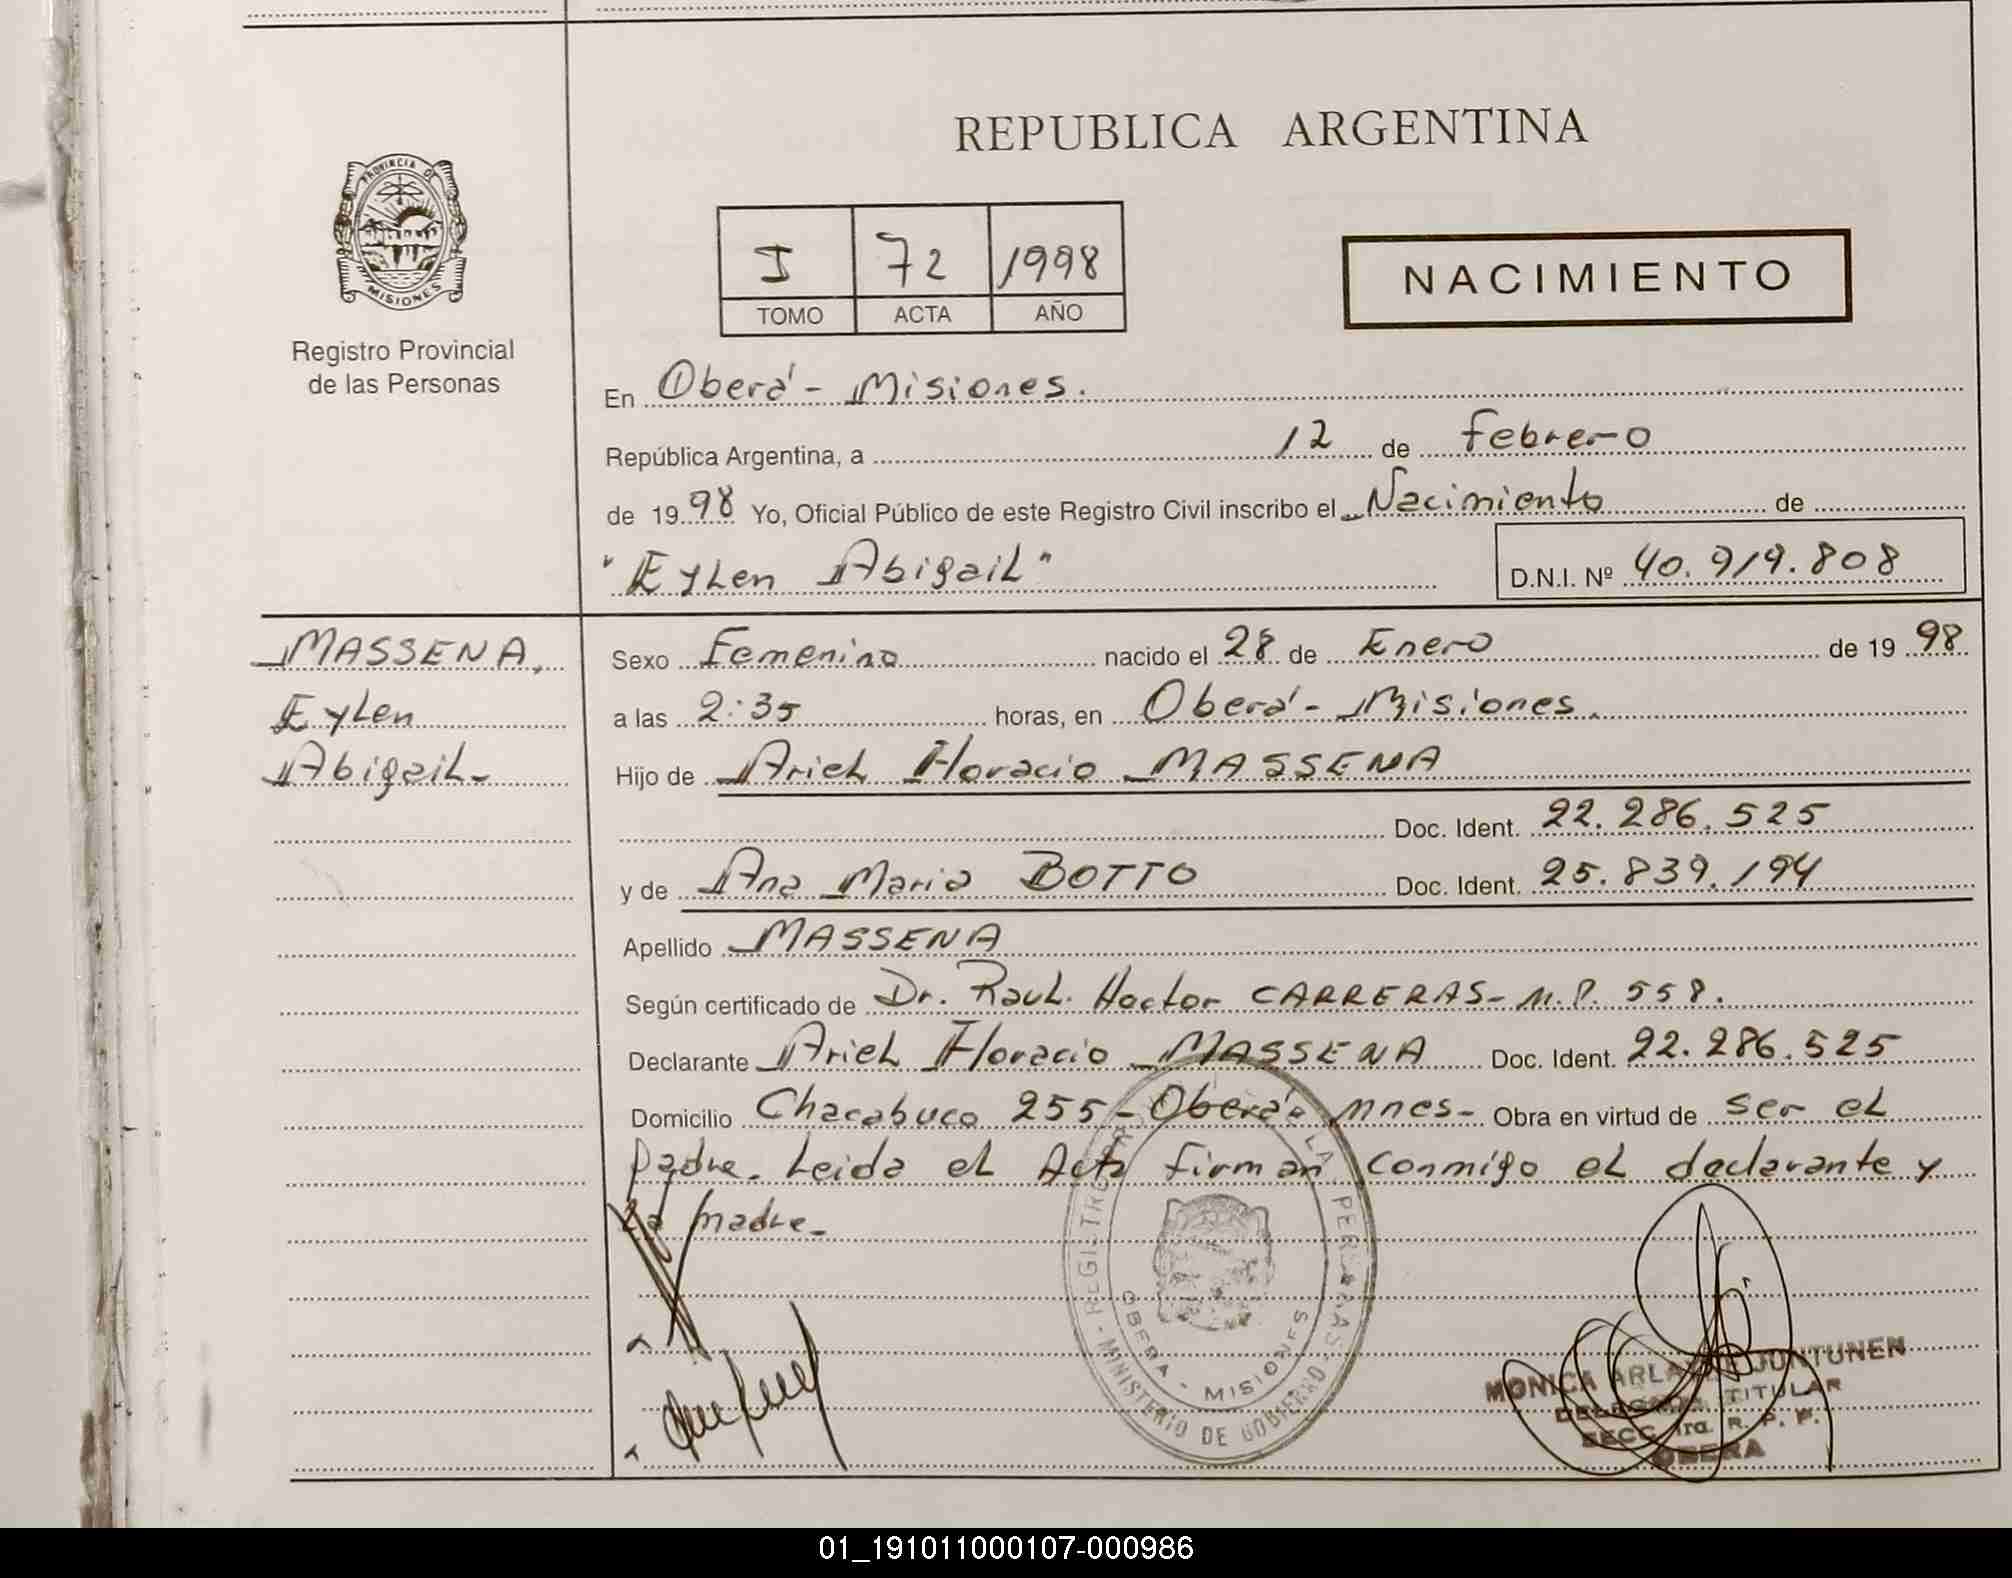 REPUBLICA ARGENTINA
PROVINCIA DE
MISIONES
Registro Provincial
de las Personas
I 72 1998
TOMO ACTA AÑO
NACIMIENTO
En Oberá - Misiones.
República Argentina, a 12 de febrero
de 1998 Yo, Oficial Público de este Registro Civil inscribo el Nacimiento de
"Eylen Abigail" D.N.I. Nº 40.919.808
MASSENA,
Eylen
Abigail-
Sexo Femenino nacido el 28 de Enero de 1998
a las 2:35 horas, en Oberá - Misiones.
Hijo de Ariel Horacio MASSENA
Doc. Ident. 22.286.525
y de Ana Maria BOTTO Doc. Ident. 25.839.194
Apellido MASSENA
Según certificado de Dr. Raul. Hector CARRERAS- M.P. 558.
Declarante Ariel Horacio MASSENA Doc. Ident. 22.286.525
Domicilio Chacabuco 255 - Oberá - Mnes- Obra en virtud de ser el
padre. Leida el Acta firman conmigo el declarante y
la madre-
REGISTRO DE LAS PERSONAS - MINISTERIO DE GOBIERNO -
OBERA - MISIONES
MONICA ARLA JUNTUNEN
DELEGADA TITULAR
SECC. 1ra. R. P. P.
OBERA
01_191011000107-000986